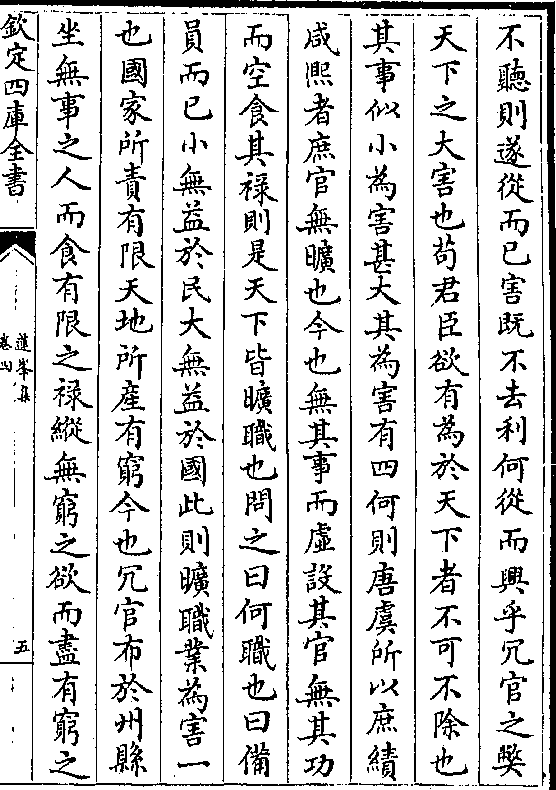 不聽則遂從而已害既不去利何從而興乎冗官之弊
天下之大害也茍君臣欲有為於天下者不可不除也
其事似小為害甚大其為害有四何則唐虞所以庶績
咸熙者庶官無曠也今也無其事而虛設其官無其功
而空食其禄則是天下皆曠職也問之曰何職也曰備
員而已小無益於民大無益於國此則曠職業為害一
也國家所責有限天地所産有窮今也冗官布於州縣
坐無事之人而食有限之禄縱無窮之欲而盡有窮之
欽定四庫全書
蓮峯集
卷四
五